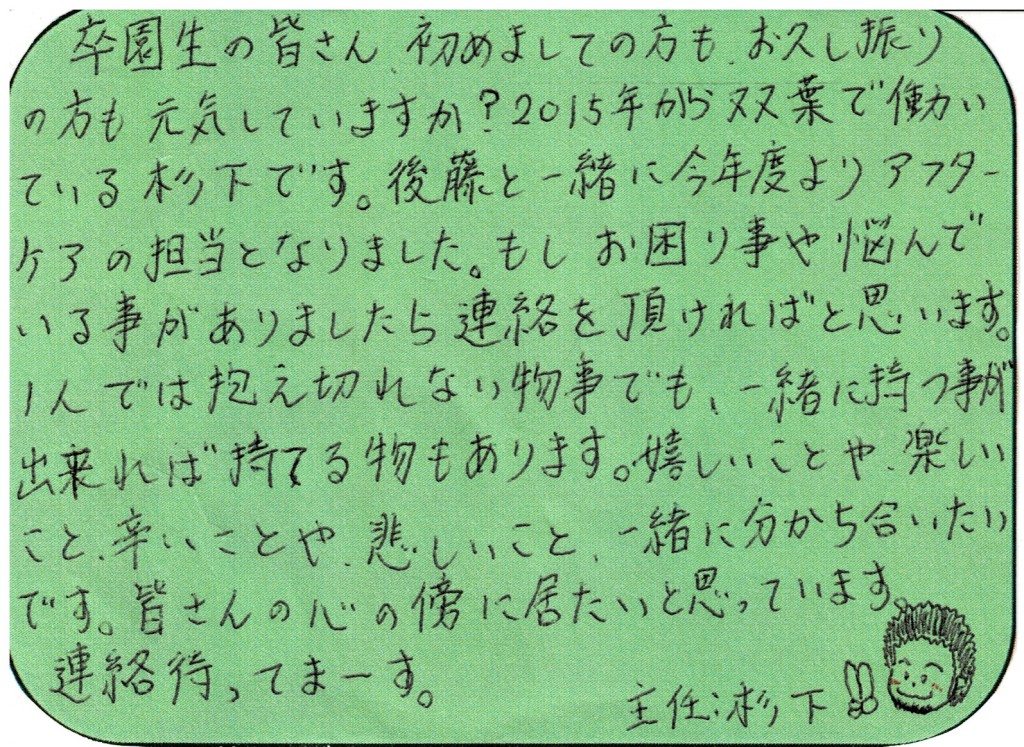 卒園生の皆さん、初めましての方も、お久し振り
の方も元気していますか？2015年から双葉で働い
ている杉下です。後藤と一緒に今年度よりアフター
ケアの担当となりました。もしお困り事や悩んで
いる事がありましたら連絡を頂ければと思います。
1人では抱え切れない物事でも、一緒に持つ事が
出来れば持てる物もあります。嬉しいことや、楽しい
こと、辛いことや、悲しいこと、一緒に分かち合いたい
です。皆さんの心の傍に居たいと思っています。
連絡待ってまーす。
主任：杉下